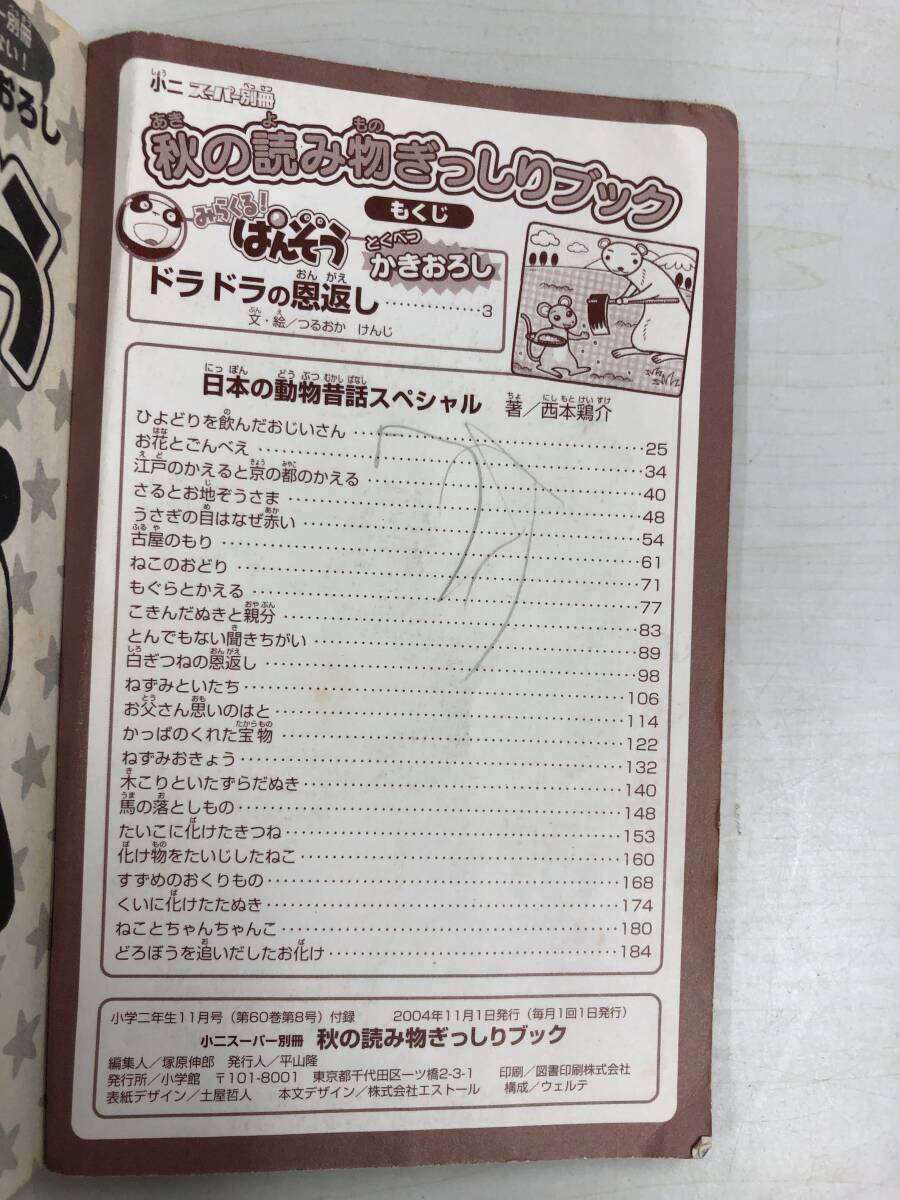 別冊
ない！
おろし
小二 スーパー別冊
秋の読み物ぎっしりブック
もくじ
みらくる！
ぱんぞう
とくべつ
かきおろし
ドラドラの恩返し…………3
文・絵／つるおか けんじ
日本の動物昔話スペシャル 著／西本鶏介
ひよどりを飲んだおじいさん…………25
お花とごんべえ…………34
江戸のかえると京の都のかえる…………40
さるとお地ぞうさま…………48
うさぎの目はなぜ赤い…………54
古屋のもり…………61
ねこのおどり…………71
もぐらとかえる…………77
こきんだぬきと親分…………83
とんでもない聞きちがい…………89
白ぎつねの恩返し…………98
ねずみといたち…………106
お父さん思いのはと…………114
かっぱのくれた宝物…………122
ねずみおきょう…………132
木こりといたずらだぬき…………140
馬の落としもの…………148
たいこに化けたきつね…………153
化け物をたいじしたねこ…………160
すずめのおくりもの…………168
くいに化けたたぬき…………174
ねことちゃんちゃんこ…………180
どろぼうを追いだしたお化け…………184
小学二年生11月号（第60巻第8号）付録 2004年11月1日発行（毎月1回1日発行）
小二スーパー別冊 秋の読み物ぎっしりブック
編集人／塚原伸郎 発行人／平山隆
発行所／小学館 〒101-8001 東京都千代田区一ツ橋2-3-1 印刷／図書印刷株式会社
表紙デザイン／土屋哲人 本文デザイン／株式会社エストール 構成／ウェルテ